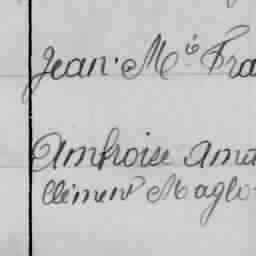 Jean. M.ie Fra
Ambroise Ama
Clément Maglo